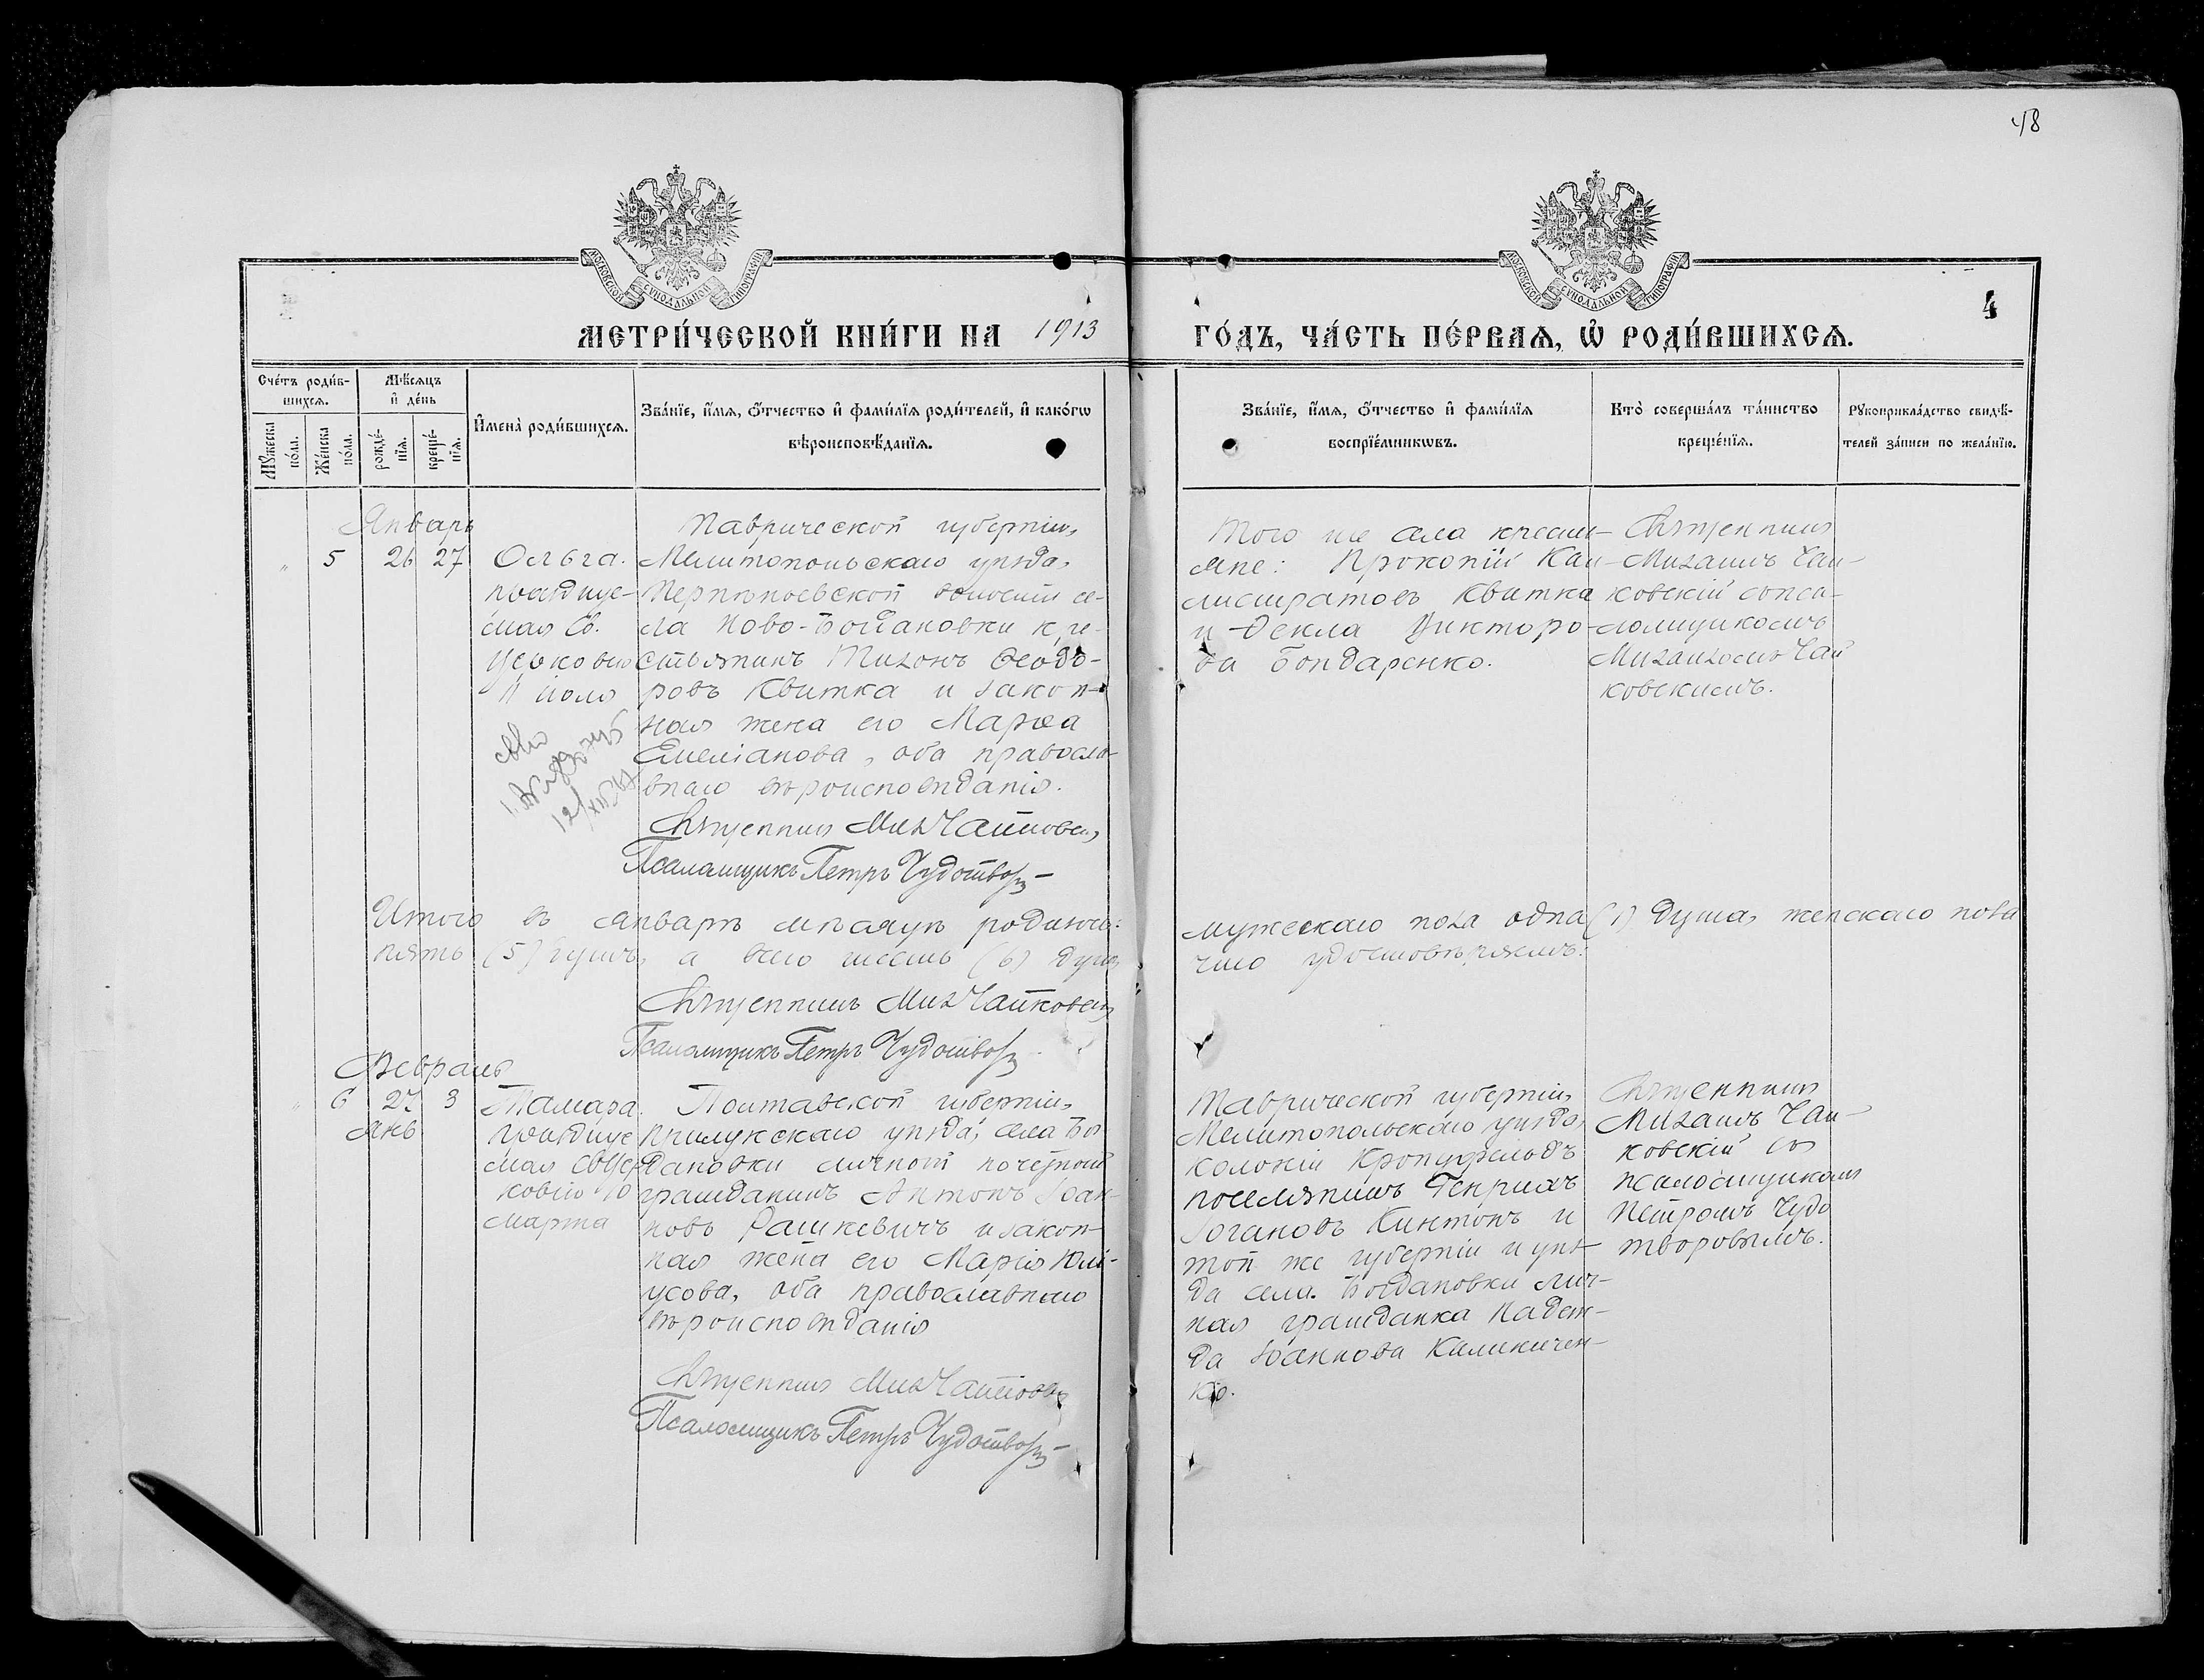 48
МОСКОВСКОЙ СѴНОДАЛЬНОЙ ТИПОГРАФІИ
МОСКОВСКОЙ СѴНОДАЛЬНОЙ ТИПОГРАФІИ
4
МЕТРИ́ЧЕСКОЙ КНИ́ГИ НА 1913 ГО́ДЪ, ЧА́СТЬ ПЕ́РВАѦ, Ѽ РОДИ́ВШИХСѦ.
Сче́тъ роди́в-
шихсѧ.
Мꙋ́жеска
по́ла.
Же́нска
по́ла.
Мѣ́сѧцъ
и҆ де́нь
рожде́-
нїѧ.
креще́-
нїѧ.
И҆мена̀ роди́вшихсѧ.
Зва́нїе, и҆́мѧ, ѻ҆́тчество и҆ фами́лїѧ роди́телей, и҆ како́гѡ
вѣроисповѣ́данїѧ.
Зва́нїе, и҆́мѧ, ѻ҆́тчество и҆ фами́лїѧ
воспрїе́мникѡвъ.
Кто̀ соверша́лъ та́инство
креще́нїѧ.
Рꙋкоприкла́дство свидѣ́-
телей за́писи по жела́нїю.
Январь
" 5 26 27
Ольга.
празднуе-
мая Св.
Церковью
11 іюля
Таврической губерніи,
Мелитопольскаго уѣзда,
волости се-
ла Ново-Богдановки кре-
стьянинъ Тихонъ Ѳеодо-
ровъ Квитка и закон-
ная жена его Марѳа
Емеліанова, оба православ-
наго вѣроисповѣданія.
Священникъ Мих Чайковскі
Псаломщикъ Петръ Чудотвор
Того же села крестья-
не: Прокопій Кал-
листратовъ Квитка
и Ѳекла Викторо-
ва Бондаренко.
Священникъ
Михаилъ Чай-
ковскій съ пса-
ломщикомъ
Михаиломъ Чай
ковскимъ.
Итого въ январѣ мѣсяцѣ родилось: мужескаго пола одна (1) душа, женскаго пола
пять (5) душъ, а всего шесть (6) душъ, что удостовѣряемъ:
Священникъ Мих Чайковскі
Псаломщикъ Петръ Чудотвор
Февраль
" 6 27 3
Янв
Тамара.
празднуе
мая Св Цер
ковію 10
марта
Полтавской губерніи,
Прилукскаго уѣзда, села Бог
дановки личный почетный
гражданинъ Антонъ Іоан-
новъ Рашкевичъ и закон-
ная жена его Марія Юлі-
усова, оба православнаго
вѣроисповѣданія
Священникъ Мих Чайковскі
Псаломщикъ Петръ Чудотвор
Таврической губерніи,
Мелитопольскаго уѣзда,
колоніи
поселянинъ Генрихъ
Іогановъ и
той же губерніи и уѣз-
да села Богдановки лич-
ная гражданка Надеж-
да Іоаннова Калиничен-
ко.
Священникъ
Михаилъ Чай-
ковскій съ
псаломщикомъ
Петромъ Чудо
творовымъ.